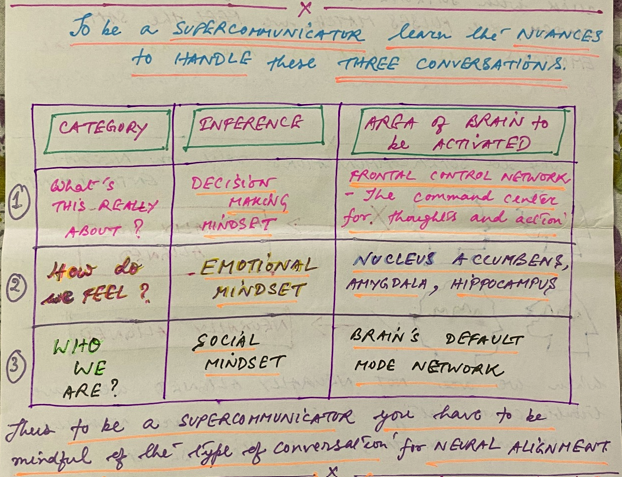 x
To be a SUPERCOMMUNICATOR learn the NUANCES
to HANDLE these THREE CONVERSATIONS.
CATEGORY
INFERENCE
AREA of BRAIN to
be ACTIVATED
1
What's
THIS REALLY
ABOUT ?
DECISION
MAKING
MINDSET
FRONTAL CONTROL NETWORK
- The command center
for thoughts and action
2
How do
we FEEL ?
EMOTIONAL
MINDSET
NUCLEUS ACCUMBENS,
AMYGDALA, HIPPOCAMPUS
3
WHO
WE
ARE ?
SOCIAL
MINDSET
BRAIN'S DEFAULT
MODE NETWORK
Thus to be a SUPERCOMMUNICATOR you have to be
mindful of the 'type of conversation' for NEURAL ALIGNMENT
x